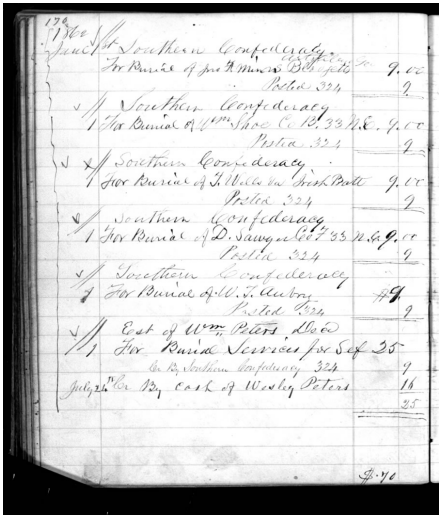 170
1860
June 1st Southern Confederacy
For Burial of Jno F. Minor 9.00
Posted 324 9
1 Southern Confederacy
1 For Burial of Wm Shoe Co B. 33 N.C. 9.00
Posted 324 9
Southern Confederacy
1 For Burial of T. Wells Va Irish Batt 9.00
Posted 324 9
Southern Confederacy
1 For Burial of D. Sawyer Co F 33 N.C. 9.00
Posted 324 9
Southern Confederacy
For Burial of W. T. Aubry $9
Posted 324 9
Est of Wm Peters Dec
For Burial Services for Self 25
Cr By Southern Confederacy 324 9
July 21st Cr By Cash of Wesley Peters 16
25
$.70